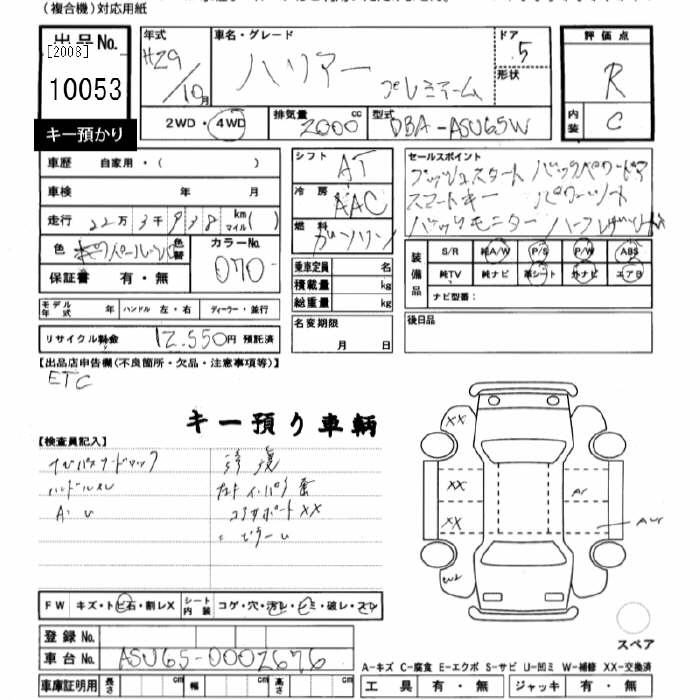 (複合機)対応用紙
出品No.
[2008]
10053
キー預かり
年式 H29/10月
車名・グレード ハリアー プレミアーム
ドア 5
形状
2WD・4WD
排気量 2000 cc
型式 DBA-ASU65W
評価点 R
内装 C
車歴 自家用・( )
車検 年 月
走行 22万3千938 km マイル( )
色 ホワイトパールシリカ 色替
カラーNo. 070
保証書 有・無
モデル年式 年 ハンドル 左・右 ディーラー・並行
リサイクル料金 12,550円 預託済
シフト AT
冷房 AAC
燃料 ガソリン
乗車定員 名
積載量 kg
総重量 kg
名変期限 月 日
セールスポイント
プッシュスタート バックパワードア
スマートキー パワーシート
バックモニター ハーフレザーシート
装備品
S/R 純A/W P/S P/W ABS
純TV 純ナビ 革シート 外ナビ エアB
ナビ型番:
後日品
【出品店申告欄(不良箇所・欠品・注意事項等)】
ETC
キー預り車輌
【検査員記入】
ナビパスワードロック
ハンドルスレ
A・U
コアサポートXX
ピラーU
FW キズ・トビ石・割レX
シート内装 コゲ・穴・汚レ・シミ・破レ・スレ
XX
XX
XX
スペア
登録No.
車台No. ASU65-0002676
車庫証明用 長さ cm 幅 cm 高さ cm
A-キズ C-腐食 E-エクボ S-サビ U-凹ミ W-補修 XX-交換済
工具 有・無 ジャッキ 有・無